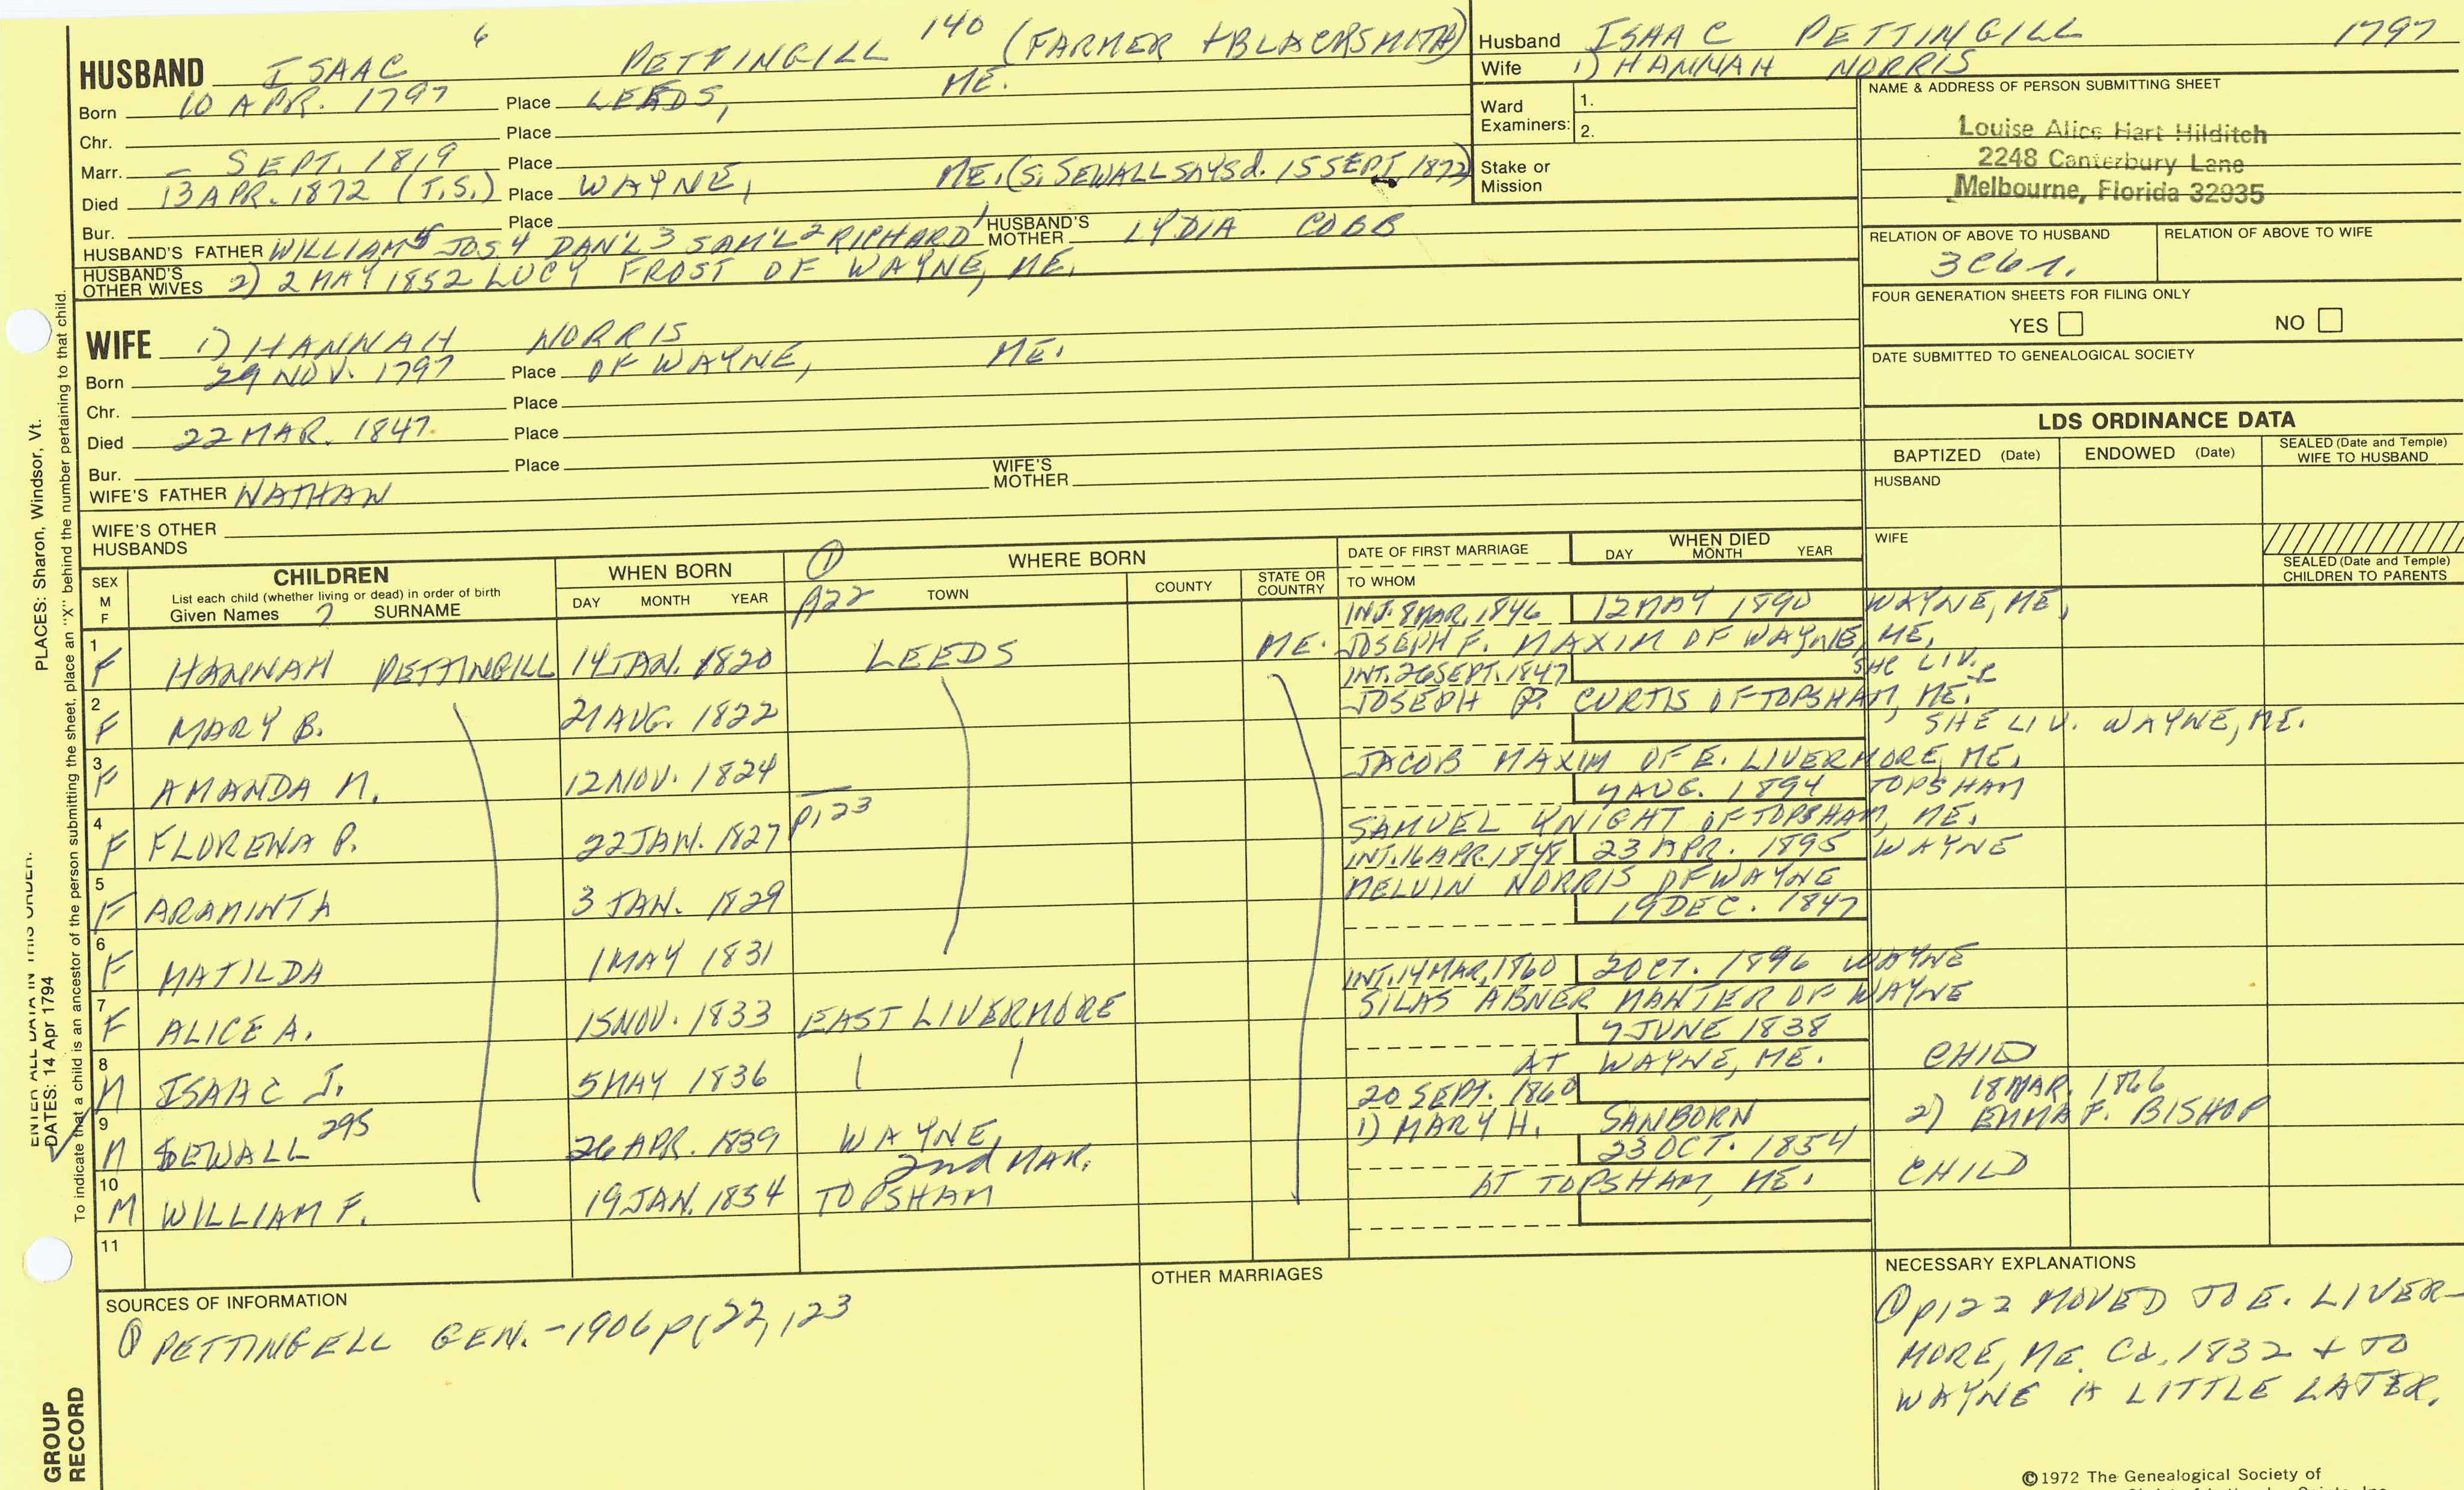 HUSBAND ISAAC 6 PETTINGILL 140 (FARMER + BLACKSMITH)
Born 10 APR. 1797 Place LEEDS, ME.
Chr. Place
Marr. – SEPT. 1819 Place
Died 13 APR. 1872 (T.S.) Place WAYNE, ME. (S. SEWALL SAYS d. 15 SEPT. 1872)
Bur. Place
HUSBAND'S FATHER WILLIAM 5 JOS. 4 DAN'L 3 SAM'L 2 RICHARD 1 HUSBAND'S MOTHER LYDIA COBB
HUSBAND'S OTHER WIVES 2) 2 MAY 1852 LUCY FROST OF WAYNE, ME.
Husband ISAAC PETTINGILL 1797
Wife 1) HANNAH NORRIS
Ward Examiners: 1.
2.
Stake or Mission
NAME & ADDRESS OF PERSON SUBMITTING SHEET
Louise Alice Hart Hilditch
2248 Canterbury Lane
Melbourne, Florida 32935
RELATION OF ABOVE TO HUSBAND RELATION OF ABOVE TO WIFE
FOUR GENERATION SHEETS FOR FILING ONLY
YES NO
DATE SUBMITTED TO GENEALOGICAL SOCIETY
WIFE 1) HANNAH NORRIS
Born 29 NOV. 1797 Place OF WAYNE, ME.
Chr. Place
Died 22 MAR. 1847 Place
Bur. Place
WIFE'S FATHER NATHAN WIFE'S MOTHER
WIFE'S OTHER HUSBANDS
LDS ORDINANCE DATA
BAPTIZED (Date) ENDOWED (Date) SEALED (Date and Temple) WIFE TO HUSBAND
HUSBAND
WIFE
SEALED (Date and Temple) CHILDREN TO PARENTS
SEX M F
CHILDREN
List each child (whether living or dead) in order of birth
Given Names 7 SURNAME
WHEN BORN
DAY MONTH YEAR
① WHERE BORN
P122 TOWN COUNTY STATE OR COUNTRY
DATE OF FIRST MARRIAGE
TO WHOM
WHEN DIED
DAY MONTH YEAR
INT. 8 MAR. 1846 12 MAY 1890 WAYNE, ME.
1 F HANNAH PETTINGILL 14 JAN. 1820 LEEDS ME. JOSEPH F. MAXIM OF WAYNE, ME.
INT. 26 SEPT. 1847 SHE LIV.
2 F MARY B. 21 AUG. 1822 JOSEPH P. CURTIS OF TOPSHAM, ME.
SHE LIV. WAYNE, ME.
3 F AMANDA M. 12 NOV. 1824 JACOB MAXIM OF E. LIVERMORE, ME.
7 AUG. 1894 TOPSHAM
4 F FLORENA P. 22 JAN. 1827 P123 SAMUEL KNIGHT OF TOPSHAM, ME.
INT. 16 APR. 1848 23 APR. 1895 WAYNE
5 F ARAMINTA 3 JAN. 1829 MELVIN NORRIS OF WAYNE
19 DEC. 1847
6 F MATILDA 1 MAY 1831
INT. 14 MAR. 1860 2 OCT. 1896 WAYNE
7 F ALICE A. 15 NOV. 1833 EAST LIVERMORE SILAS ABNER MANTER OF WAYNE
7 JUNE 1838
8 M ISAAC J. 5 MAY 1836 AT WAYNE, ME. CHILD
20 SEPT. 1860 18 MAR. 1866
9 M SEWALL 295 26 APR. 1839 WAYNE, 1) MARY H. SANBORN 2) EMMA F. BISHOP
2nd MAR. 23 OCT. 1854
10 M WILLIAM F. 19 JAN. 1854 TOPSHAM AT TOPSHAM, ME. CHILD
11
SOURCES OF INFORMATION
① PETTINGELL GEN. - 1906 p122, 123
OTHER MARRIAGES
NECESSARY EXPLANATIONS
① p122 MOVED TO E. LIVER-
MORE, ME. Ca. 1832 + TO
WAYNE A LITTLE LATER.
©1972 The Genealogical Society of
PLACES: Sharon, Windsor, Vt.
To indicate that a child is an ancestor of the person submitting the sheet, place an "X" behind the number pertaining to that child.
ENTER ALL DATA IN THIS ORDER:
DATES: 14 Apr 1794
GROUP
RECORD